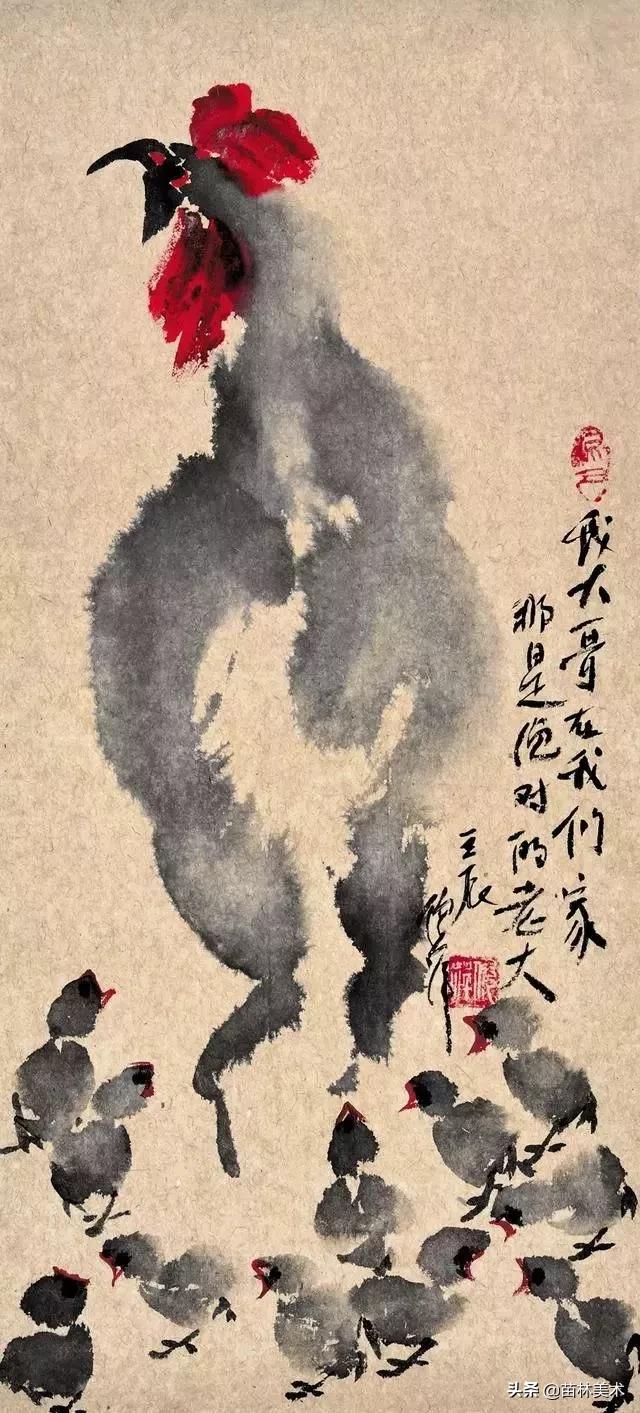 我大哥在我们家
那是绝对的老大
壬辰
头条@苗林美术